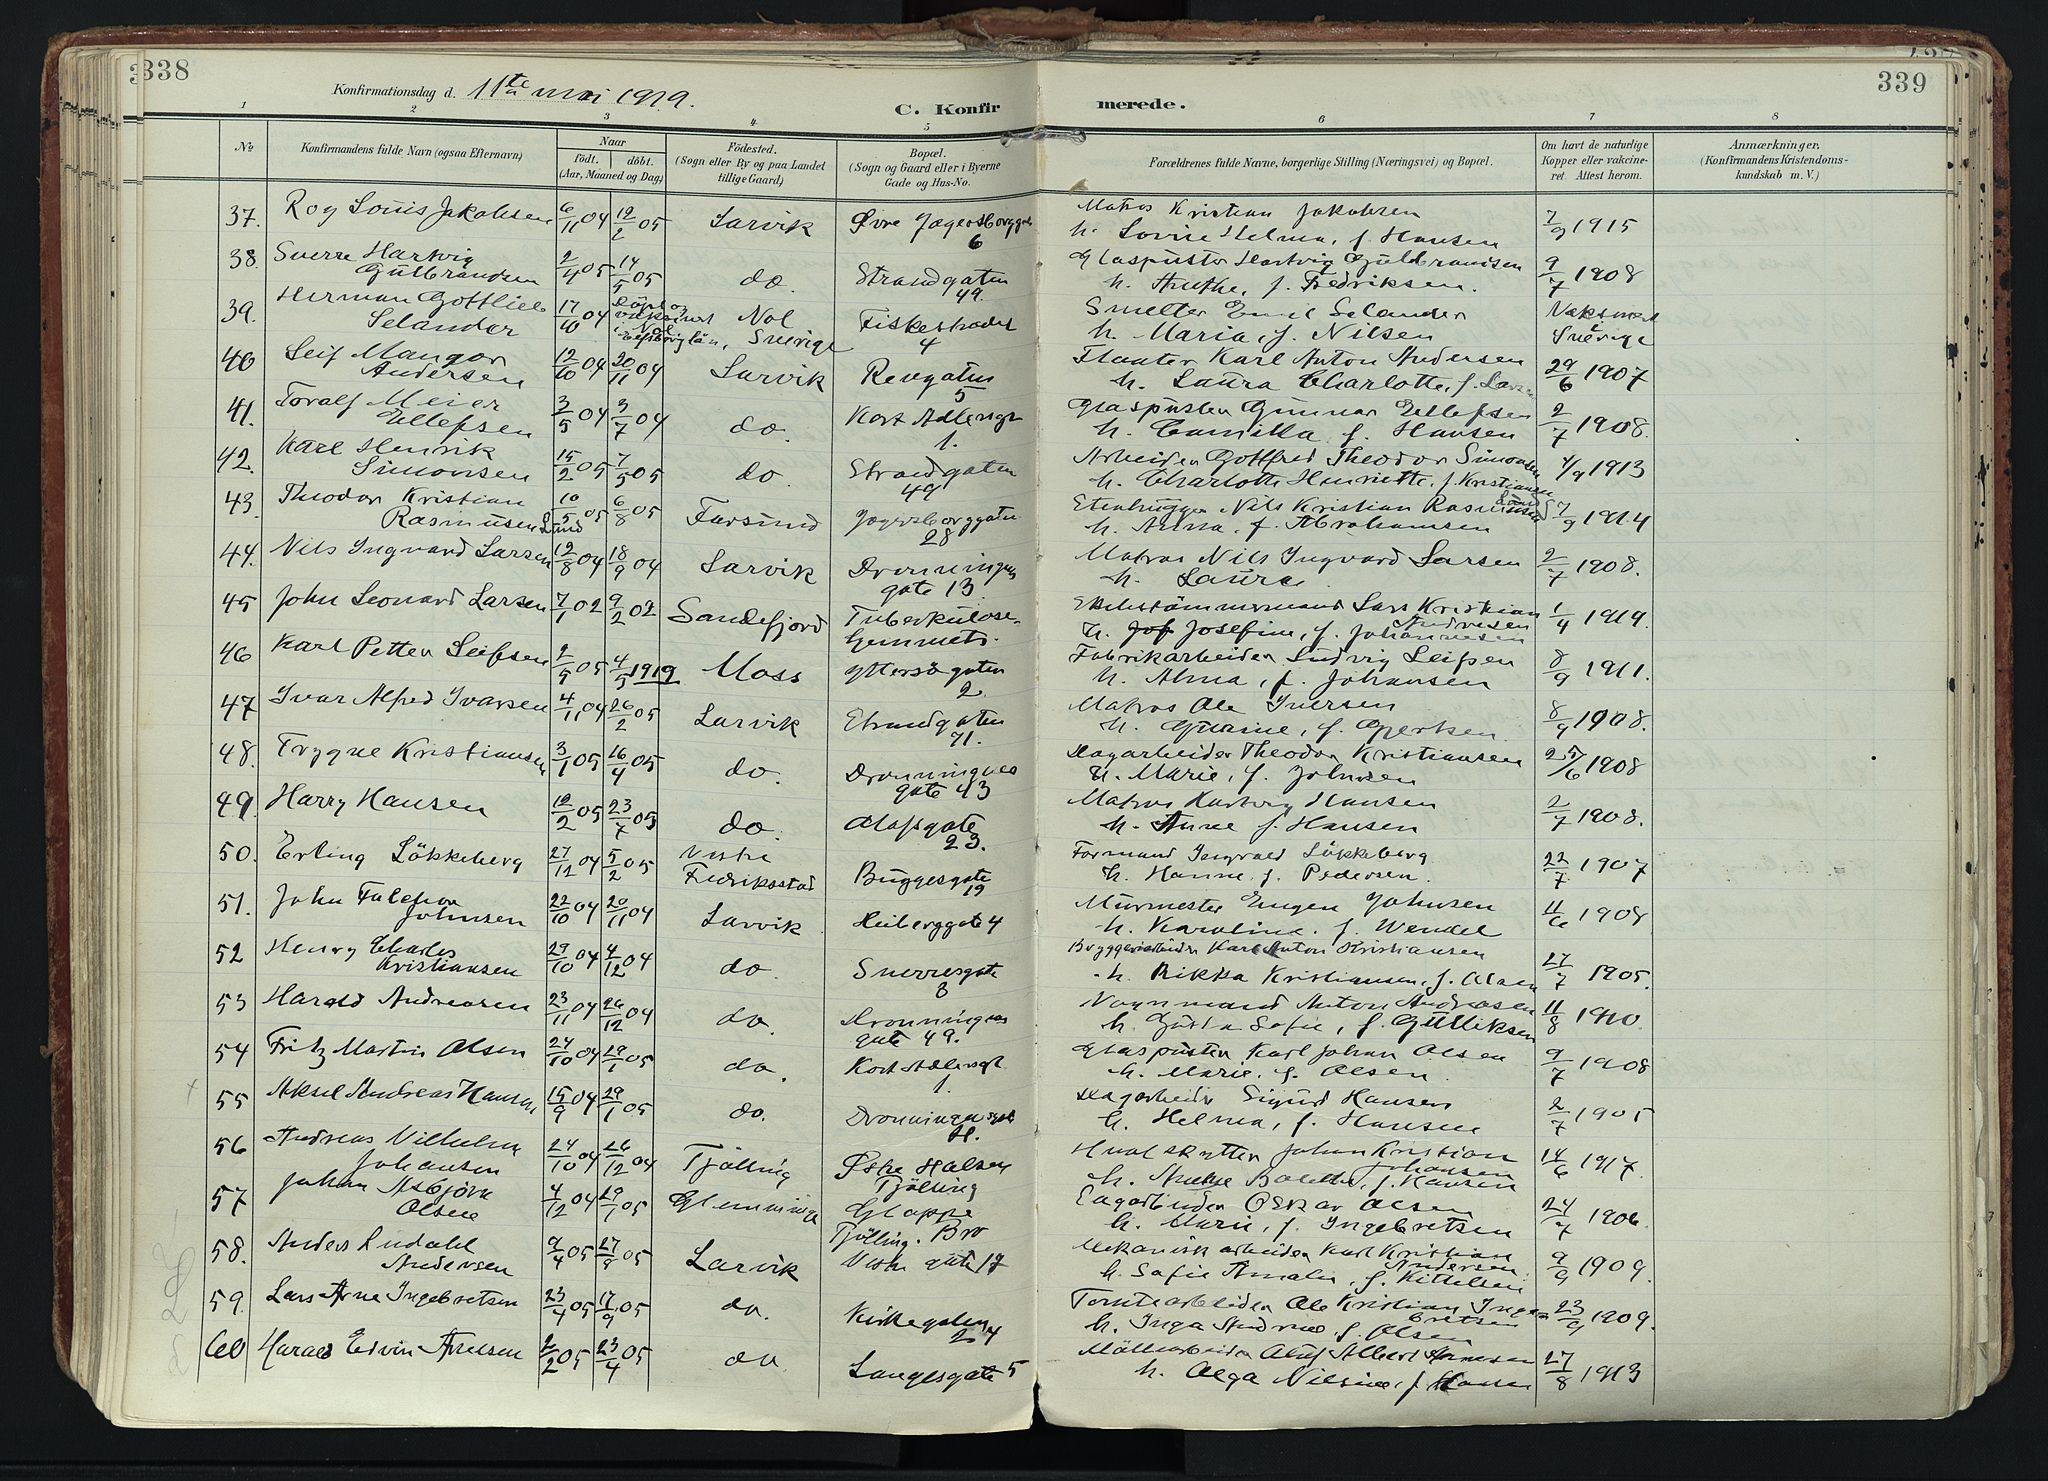 338
339
Konfirmationsdag d. 11te mai 1919.
C. Konfirmerede.
1 2 3 4 5 6 7 8
No.
Konfirmandens fulde Navn (ogsaa Efternavn)
Naar
födt. döbt.
(Aar, Maaned og Dag)
Födested.
(Sogn eller By og paa Landet
tillige Gaard)
Bopæl.
(Sogn og Gaard eller i Byerne
Gade og Hus-No.
Forældrenes fulde Navne, borgerlige Stilling (Næringsvei) og Bopæl.
Om havt de naturlige
Kopper eller vakcine-
ret. Attest herom.
Anmærkninger.
(Konfirmandens Kristendoms-
kundskab m. V.)
37. Roy Louis Jakobsen 6/11 04 12/2 05 Larvik Øvre Jegersborggate 6 Matros Kristian Jakobsen h. Lovise Helma, f. Hansen 7/9 1915
38. Sverre Hartvig Gulbrandsen 2/4 05 14/5 05 do. Strandgaten 49. Glaspuster Hartvig Gulbrandsen h. Anethe, f. Fredriksen. 9/7 1908
39. Herman Gottlieb Selander 17/10 04 Nol Elfsborglän, Sverige Fiskestrædet 4 Smelter Emil Selander h. Maria, f. Nilsen Sverige
40 Leif Mangor Andersen 12/10 04 20/11 04 Larvik Revegaten 5 Karl Anton Andersen h. Laura Charlotte, f. 29/6 1907
41. Toralf Meier Ellefsen 3/5 04 3/7 04 do. Kort Adlersgt 1. Glaspuster Gunnar Ellefsen h. Camilla f. Hansen 2/7 1908.
42. Karl Henrik Simonsen 15/2 05 7/5 05 do. Strandgaten 49 Arbeider Gottfred Theodor Simonsen h. Charlotte Henriette, f. Kristiansen 4/9 1913
43. Theodor Kristian Rasmussen Lund 10/5 05 6/8 05 Farsund Jegersborggaten 28 Stenhugger Nils Kristian Rasmussen Lund h. Anna, f. Abrahamsen 7/9 1914
44. Nils Ingvard Larsen 12/8 04 18/9 04 Larvik Dronningens gate 13. Matros Nils Ingvard Larsen h. Laura 2/7 1908.
45 John Leonard Larsen 7/1 02 9/2 02 Sandefjord Tuberkulose- hjemmet. Skibstømmermand Lars Kristian Andresen h. Jof Josefine, f. Johannesen 1/4 1919.
46 Karl Petter Leifsen 2/5 05 4/5 1919 Moss Yttersögaten 2. Fabrikarbeider Ludvig Leifsen h. Alma, f. Johansen 8/9 1911.
47 Ivar Alfred Ivarsen 4/11 04 26/2 05 Larvik Strandgaten 71. Matros Ole Iversen h. f. 8/9 1908.
48. Trygve Kristiansen 3/1 05 16/4 05 do. Dronningens gate 43 Dagarbeider Theodor Kristiansen h. Marie, f. Johnsen 25/6 1908
49 Harry Hansen 12/2 05 23/7 05 do. Olafsgate 23. Matros Hartvig Hansen h. Anne f. Hansen 2/7 1908.
50. Erling Lökkeberg 27/12 04 5/2 05 Vestre Fredriksstad Buggesgate 19 Formand Ingvald Lökkeberg h. Hanne f. Pedersen. 22/7 1907
51. John Johnsen 22/10 04 20/11 04 Larvik Heiberggate 4 Murmester Eugen Johnsen h. Karoline. f. Wendel 11/6 1908
52 Henry Charles Kristiansen 29/10 04 4/12 04 do. Sverresgate 3 Bryggeriarbeider Karl Anton Kristiansen h. Rikka Kristiansen, f. Olsen 27/7 1905.
53 Harald Andreasen 23/11 04 26/12 04 do. Dronningens gate 49. Vognmand Anton Andreasen h. Gusta Sofie, f. Gulliksen 11/8 1910.
54 Fritz Martin Olsen 24/10 04 29/1 05 do. Kort Adlersgt 1. Glaspuster Karl Johan Olsen h. Marie, f. Olsen. 9/7 1908
55 Aksel Andreas Hansen 15/9 04 29/1 05 do. Dronningensgate Dagarbeider Sigurd Hansen h. Helma, f. Hansen 2/7 1905
56 Andreas Vilhelm Johansen 24/10 04 26/12 04 Tjölling Østre Halsen Tjölling Hvalskytter Johan Kristian Johansen h. f. Hansen 14/6 1917.
57 Johan Asbjörn Olsen 4/12 04 29/1 05 Glemminge Gloppe Tjölling. Bro Sagarbeider Oskar Olsen h. Marie, f. Ingebretsen 24/7 1906.
58. Anders Andersen 9/4 05 27/8 05 Larvik Vestre gate 17 Mekanisk arbeider Karl Kristian Andersen h. Sofie Amalie, f. Kittelsen 9/9 1909.
59. Lars Arne Ingebretsen 23/4 05 17/9 05 do. Kirkegaten 24 Tomtearbeider Ole Kristian Ingebretsen h. Inga Andrine f. Olsen 23/9 1909.
60 Harald Edvin Arnesen 2/2 05 23/4 05 do. Langesgate 5 Möllearbeider Oluf Albert Arnesen h. Olga Nilsine, f. Hansen 27/8 1913